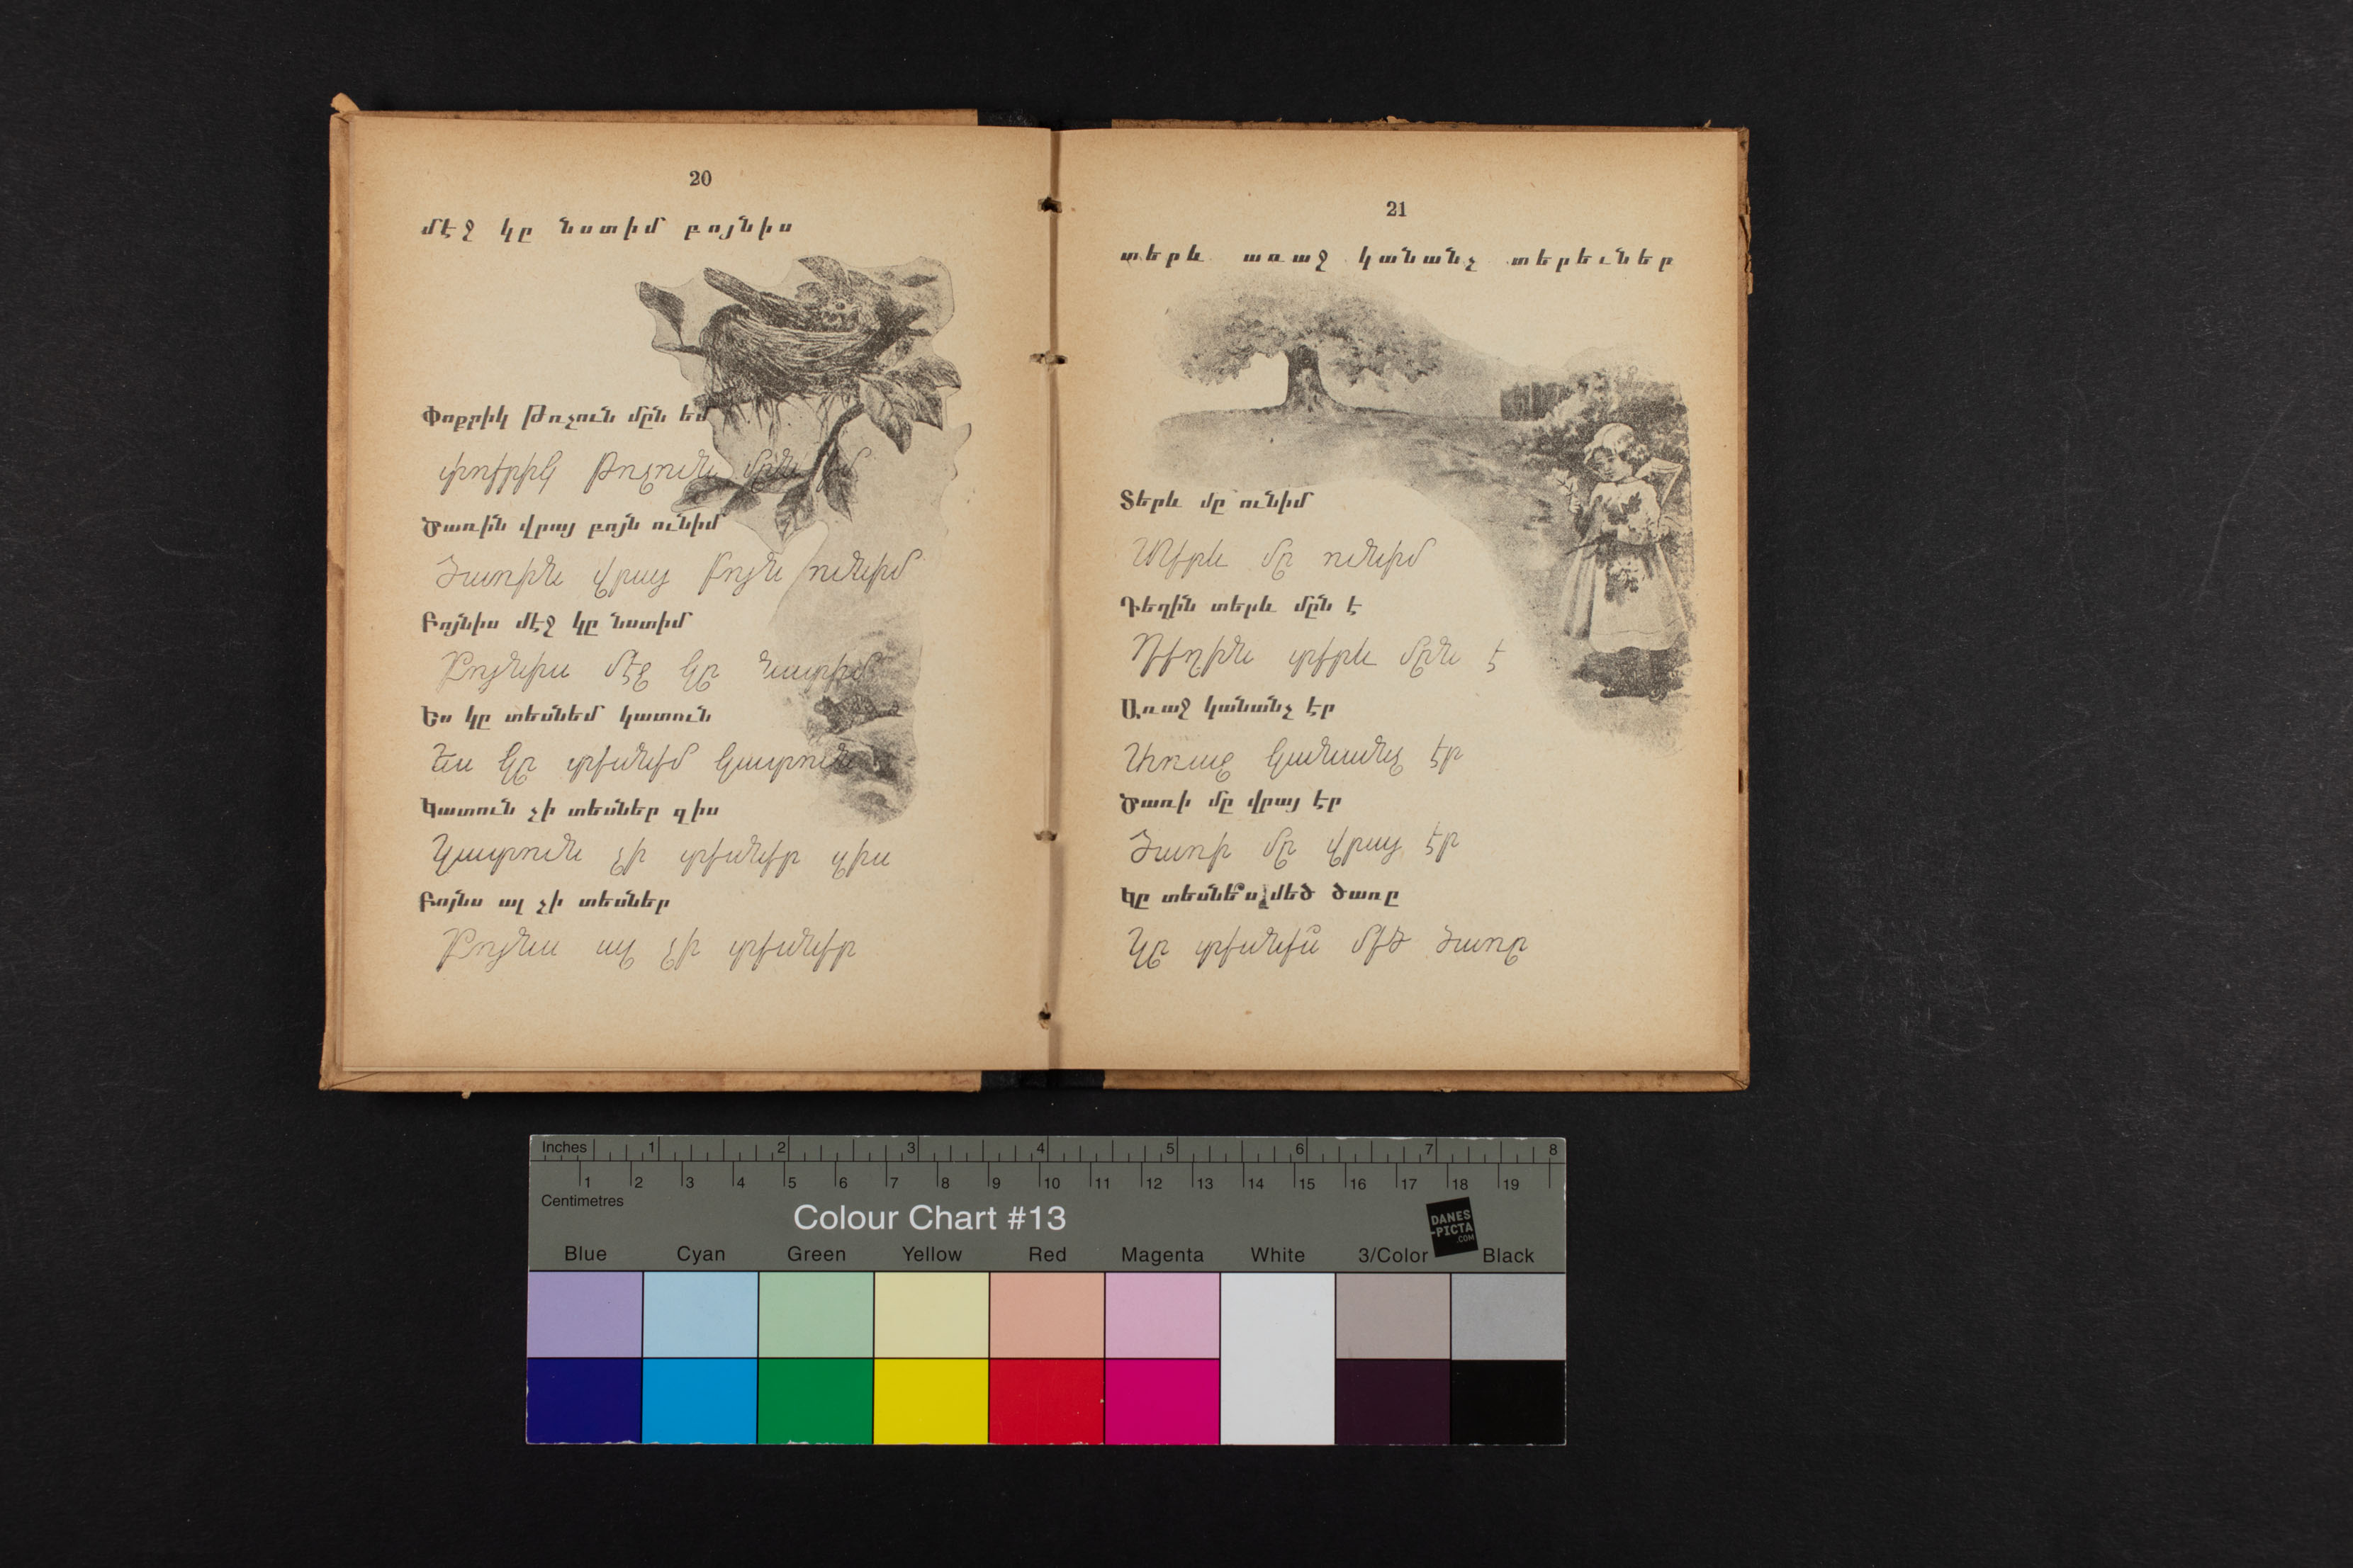 20
մէջ կը նստիմ բոյնիս
Փոքրիկ Թռչուն մըն եմ
փոքրիկ թռչուն մըն եմ
Ծառին վրայ բոյն ունիմ
Ծառին վրայ բոյն ունիմ
Բոյնիս մէջ կը նստիմ
Բոյնիս մէջ կը նստիմ
Ես կը տեսնեմ կատուն
Ես կը տեսնեմ կատուն
Կատուն չի տեսներ զիս
Կատուն չի տեսներ զիս
Բոյնս ալ չի տեսներ
Բոյնս ալ չի տեսներ
21
տերև առաջ կանանչ տերեւներ
Տերև մը ունիմ
Տերև մը ունիմ
Դեղին տերև մըն է
Դեղին տերև մըն է
Առաջ կանանչ էր
Առաջ կանանչ էր
Ծառի մը վրայ էր
Ծառի մը վրայ էր
Կը տեսնե՞ս մեծ ծառը
Կը տեսնես մեծ ծառը
Inches 1 2 3 4 5 6 7 8
1 2 3 4 5 6 7 8 9 10 11 12 13 14 15 16 17 18 19
Centimetres
Colour Chart #13
DANES
-PICTA
.COM
Blue Cyan Green Yellow Red Magenta White 3/Color Black